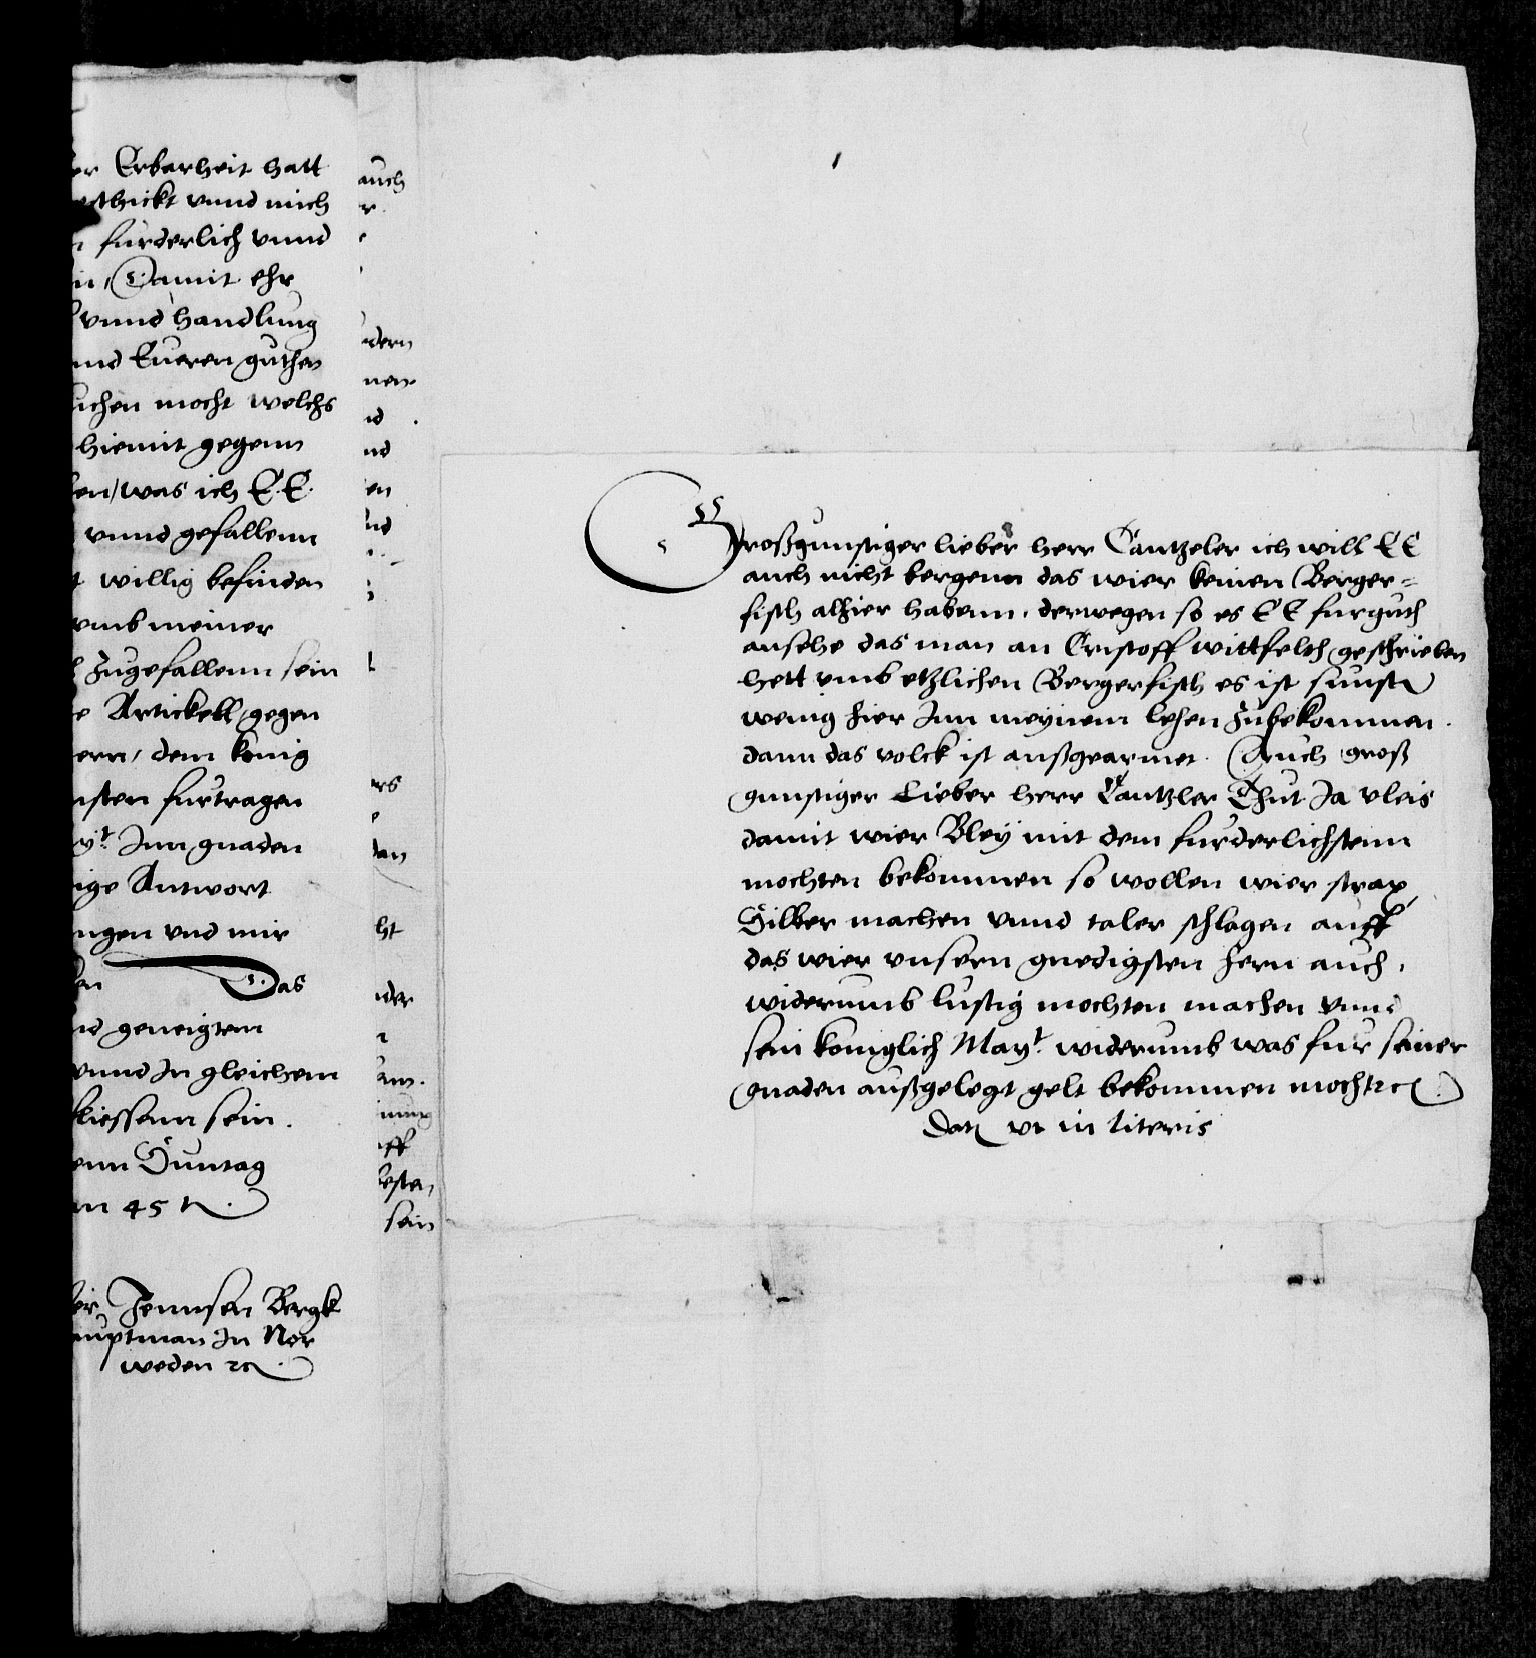 er Erbarheit hatt
eschickt vnnd mich
n furderlich vnnd
in, Damit ehr
vnnd handlung
nnd Eueren guthen
uchen mocht welchs
hiemit gegenn
en, was ich E.E.
vnnd gefallenn
t willig befinden
vmb meiner
zugefallenn sein
e Artickell gegen
ern, dem konig
nsten furtragen
yt Inn gnaden
ige Antwort
ngen vnd mir
en Das
nd geneigtem
vnnd In gleichem
fliessenn sein.
enn Suntag
m 45 t.
er Jennsen Bergk
auptman In Nor
weden rc.
auch
r.
dern
nen
nd
nd
en
nd
rs
e
dan
cht
nder
nung
uff
sein
Großgunstiger lieber herr Cantzeler ich will EE
auch nicht bergenn das wier keinen Berger=
fisch alhier habenn, derwegen so es EE fur guth
ansehe das man an Cristoff wittfelth geschrieben
hett vmb etzlichen Bergerfisch es ist sunst
wenig hier Inn meynem lehen zubekommen.
dann das volck ist außgearmet. Auch groß
gunstiger Lieber herr Cantzler Thut Ja vleis
damit wier Bley mit dem furderlichstenn
mochten bekommen so wollen wier strax
Silber machen vnnd taler schlagen auff
das wier vnsern gnedigsten hern auch,
widerumb lustig mochten machen vnnd
sein koniglich Mayt. widerumb was fur seiner
gnaden außgelegt gelt bekommen mocht rc
Dat vt in literis